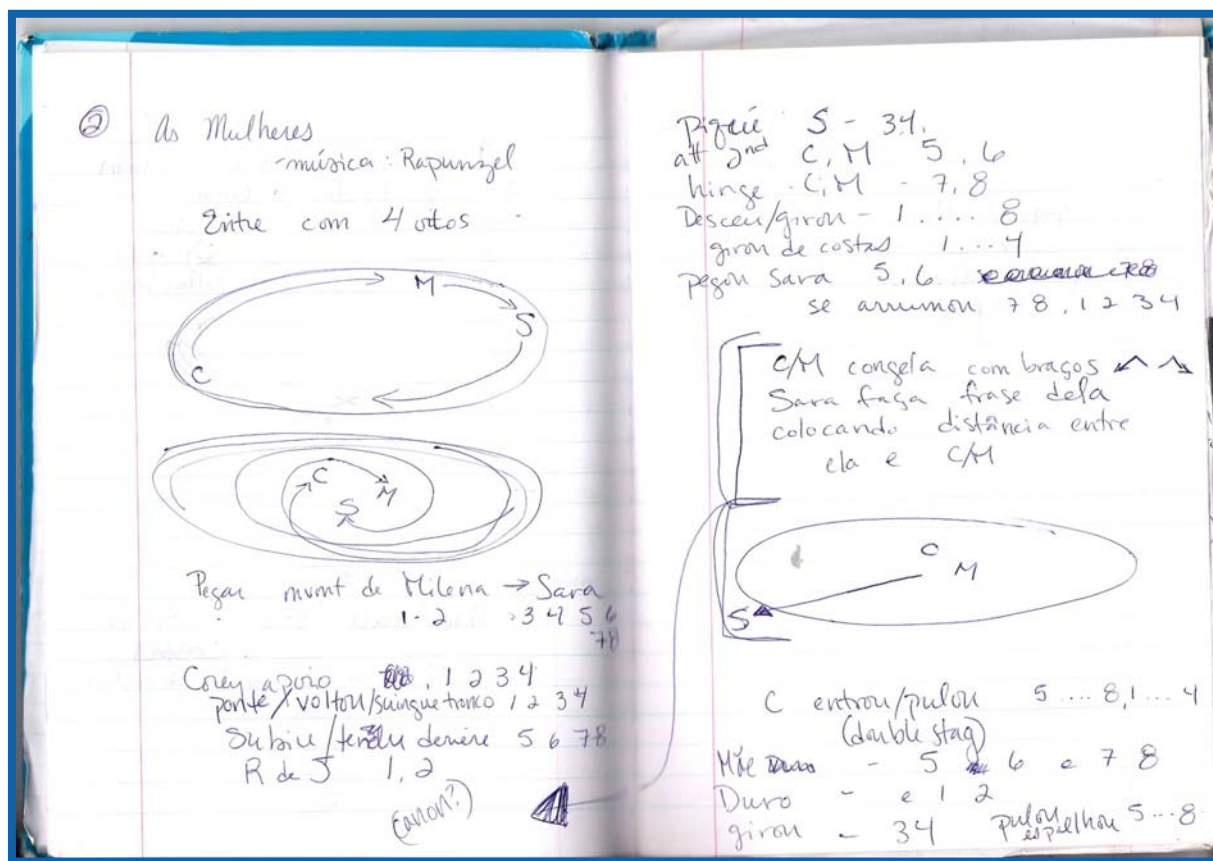 ② As Mulheres
-música: Rapunzel
Entre com 4 oitos
M
S
C
C
M
S
Pegar mvmt de Milena → Sara
1-2 3 4 5 6
78
Corey apoio 1 2 3 4
ponte/voltou/suingue tronco 1 2 3 4
Subiu/tendu derrière 5 6 7 8
R de J 1, 2
(canon?)
piqué S - 34,
att 2nd C, M 5, 6
hinge - C, M - 7, 8
Desceu/girou - 1 .... 8
girou de costas 1 ... 4
pegou Sara 5, 6
se arrumou 7 8, 1 2 3 4
C/M congela com braços
Sara faça frase dela
colocando distância entre
ela e C/M
C
M
S
C entrou/pulou 5 .... 8, 1 .... 4
(double stag)
Mãe - 5 6 e 7 8
Duro - e 1 2
girou - 34 pulou 5 ... 8
espelhou